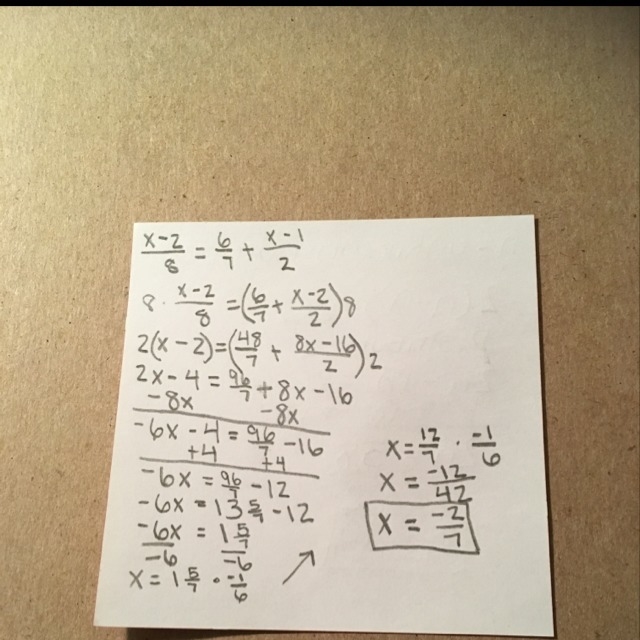 x-2/8 = 6/7 + x-1/2
8 · x-2/8 = (6/7 + x-2/2)8
2(x-2) = (48/7 + 8x-16/2)2
2x-4 = 96/7 + 8x-16
-8x -8x
-6x-4 = 96/7 -16
+4 +4
-6x = 96/7 -12
-6x = 13 5/7 -12
-6x/-6 = 1 5/7/-6
x = 1 5/7 · -1/6
x = 12/7 · -1/6
x = -12/42
x = -2/7